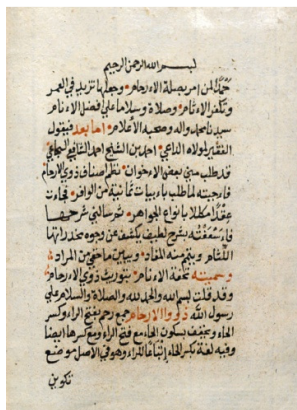 بسم الله الرحمن الرحيم
حمدا لمن امر بصلة الارحام وجعلها تزيد في العمر
وتكفر الاثام وصلاة وسلاما على افضل الانام
سيدنا محمد واله وصحبه الاعلام اما بعد فيقول
الفقير لمولاه الداعي احمد بن الشيخ احمد الشافعي السجاعي
قد طلب مني بعض الاخوان نظم اصناف ذوي الارحام
فاجبته لما طلب بابيات ثمانية من الوافر فجاءت
عقدا مكللا بانواع الجواهر ثم سالني شرحها
فاسعفته بشرح لطيف يكشف عن وجوه مخدراتها
اللثام ويتم منه المفاد ويبين ما خفي من المراد
وسميته تحفة الانام بتوريث ذوي الارحام
وقد قلت بسم الله والحمد لله والصلاة والسلام على
رسول الله ذووا الارحام جمع رحم بفتح الراء وكسر
الحاء ويخفف بسكون الحاء مع فتح الراء ومع كسرها ايضا
وفيه لغة بكسر الحاء اتباعا للراء وهو في الاصل موضع
تكوين